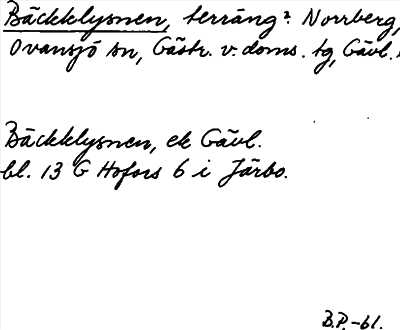 Bäckklysnen, terräng? Norrberg,
Ovansjö sn, Gästr. v. doms. tg, Gävl.
Bäckklysnen, ek Gävl.
bl. 13 G Hofors 6 i Järbo.
B.P.-bl.